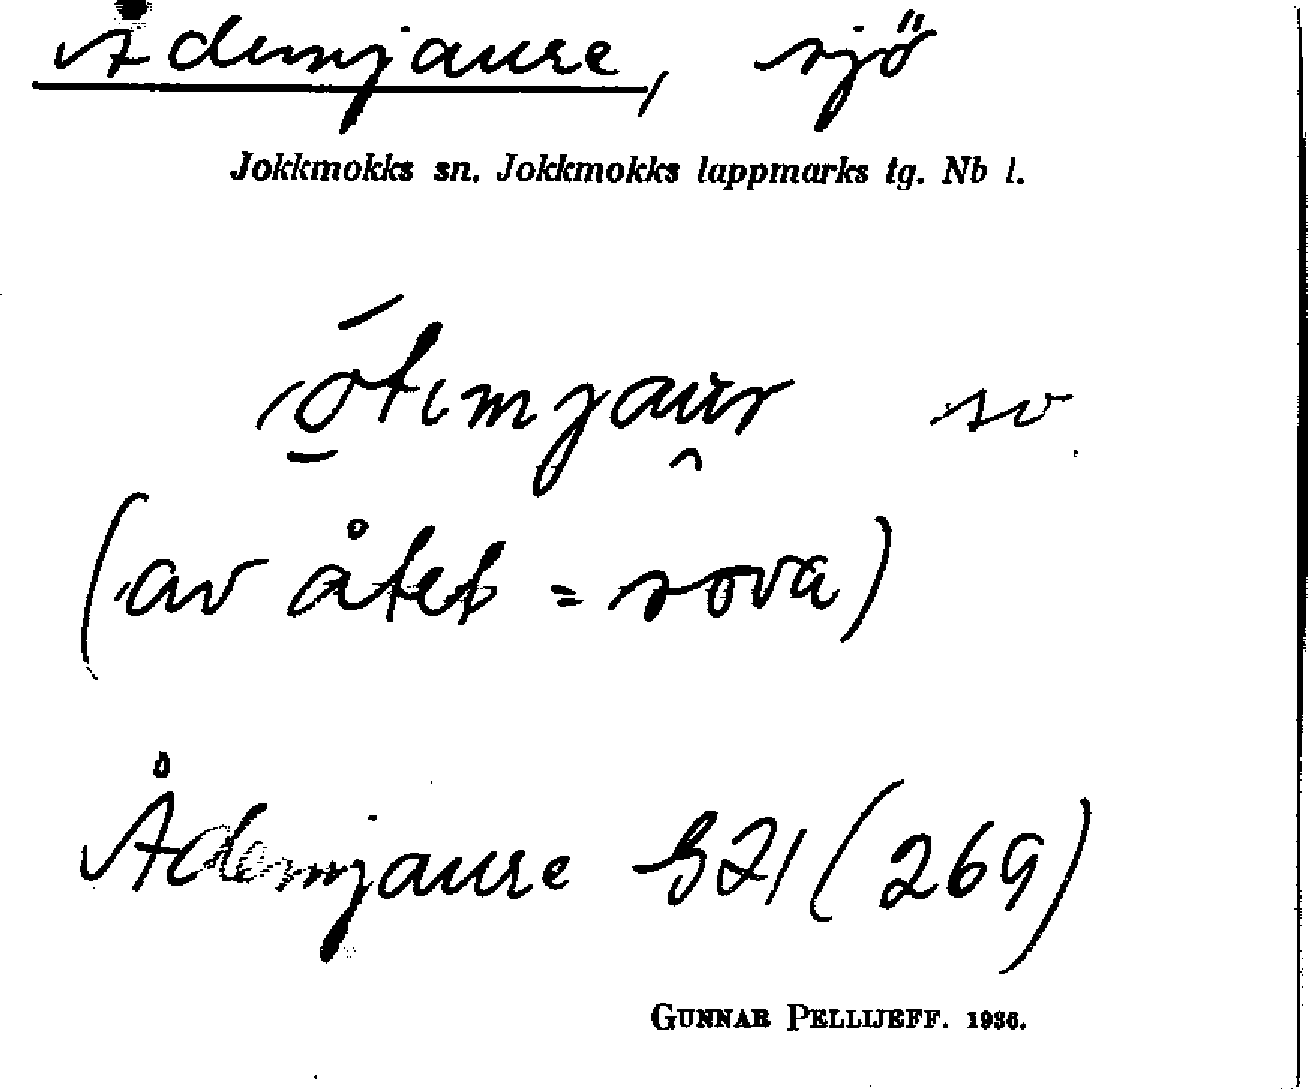 Ådemjaure, sjö
Jokkmokks sn. Jokkmokks lappmarks tg. Nb l.
sv
(av åtet = sova)
Ådemjaure 321 (269)
GUNNAR PELLIJEFF. 1936.